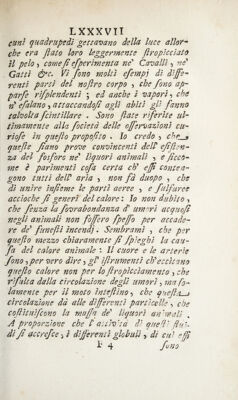 LXXXVII
cuni quadrupedi gettavano della luce allor-
che era stato loro leggermente stropicciato
il pelo, come si esperimenta ne' Cavalli, ne'
Gatti &c. Vi sono molti esempj di diffe-
renti parti del nostro corpo, che sono ap-
parse risplendenti; ed anche i vapori, che
n' esalano, attaccandosi agli abiti gli fanno
talvolta scintillare. Sono state riferite ul-
timamente alla Società delle osservazioni cu-
riose in questo proposito. Io credo, che
queste siano prove convincenti dell' esisten-
za del fosforo ne' liquori animali, e sicco-
me è parimenti cosa certa ch' essi conten-
gono tutti dell' aria, non fà duopo, che
di unire insieme le parti aeree, e sulfuree
acciocche si generi del calore: Io non dubito,
che senza la sovrabondanza d' umori acquosi
negli animali non fossero spesso per accade-
re de' funesti incendj. Sembrami, che per
questo mezzo chiaramente si spieghi la cau-
sa del calore animale: Il cuore e le arterie
sono, per vero dire, gl' istrumenti ch' eccitano
questo calore non per lo stropicciamento, che
risulta dalla circolazione degli umori, ma so-
lamente per il moto intestino, che questa
circolazione dà alle differenti particelle, che
costituiscono la massa de' liquori animali.
A proporzione che l' attività di questi flui-
di si accresce, i differenti globuli, di cui essi
F 4 sono